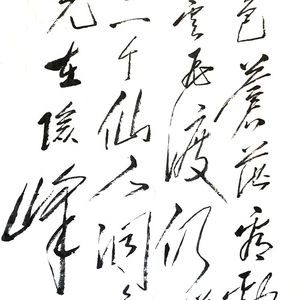 色蒼茫看勁
雲飛渡仍
一个仙人洞
光在險峰